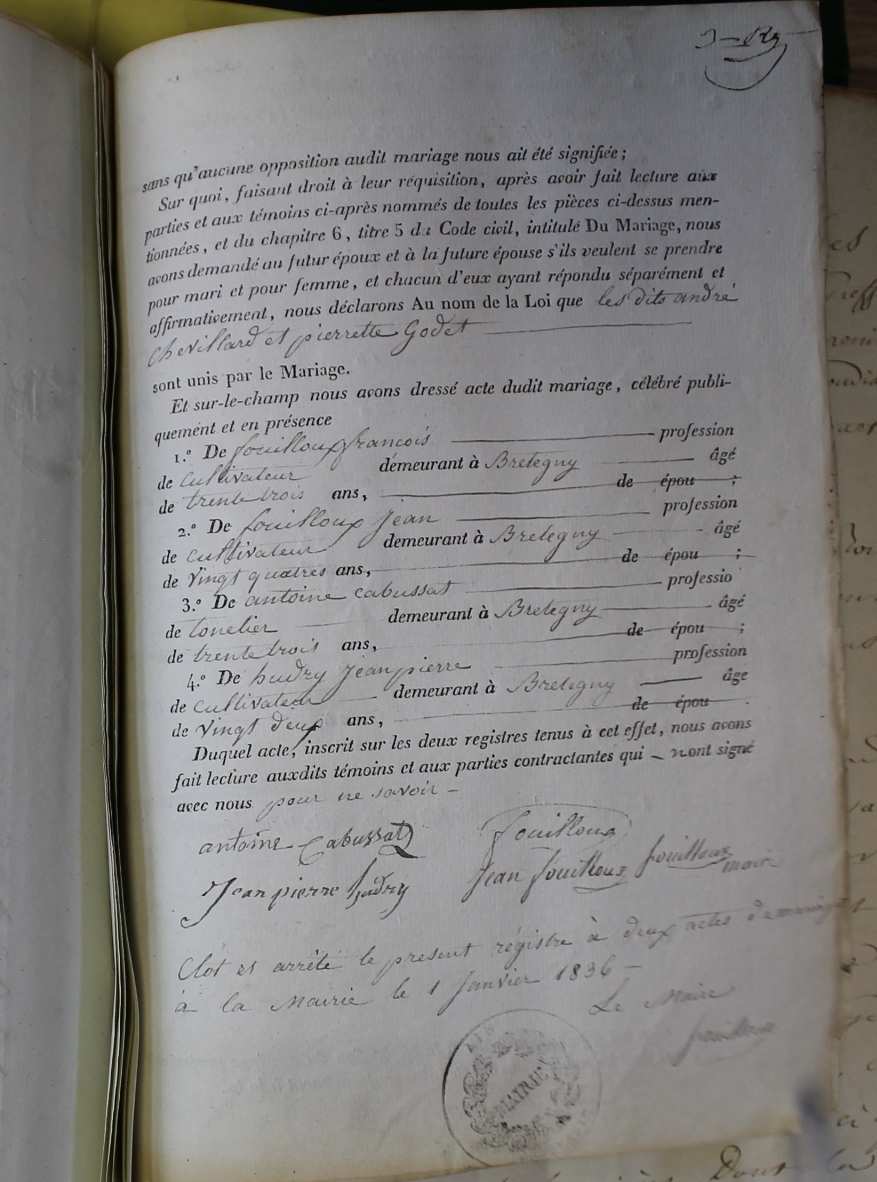 sans qu'aucune opposition audit mariage nous ait été signifiée ;
Sur quoi, faisant droit à leur réquisition, après avoir fait lecture aux
parties et aux témoins ci-après nommés de toutes les pièces ci-dessus men-
tionnées, et du chapitre 6, titre 5 du Code civil, intitulé Du Mariage, nous
avons demandé au futur époux et à la future épouse s'ils veulent se prendre
pour mari et pour femme, et chacun d'eux ayant répondu séparément et
affirmativement, nous déclarons Au nom de la Loi que les dits andré
chevillard et pierrette Godet
sont unis par le Mariage.
Et sur-le-champ nous avons dressé acte dudit mariage, célébré publi-
quement et en présence
1.° De fouilloux françois profession
de cultivateur démeurant à Bretegny âgé
de trente trois ans, de épou ;
2.° De fouilloux jean profession
de cultivateur demeurant à Bretegny âgé
de vingt quatres ans, de épou ;
3.° De antoine cabussat professio
de tonelier demeurant à Bretegny âgé
de trente trois ans, de épou ;
4.° De hudry jean pierre profession
de cultivateur demeurant à Bretegny âge
de vingt deux ans, de épou
Duquel acte, inscrit sur les deux registres tenus à cet effet, nous avons
fait lecture auxdits témoins et aux parties contractantes qui nont signé
avec nous pour ne savoir
antoine Cabussat fouilloux
Jean pierre hudry Jean fouilloux fouilloux
maire
Clôt et arrêté le present régistre à deux actes de mariages
à la Mairie le 1 Janvier 1836
Le Maire
fouilloux
MAIRIE
Dont